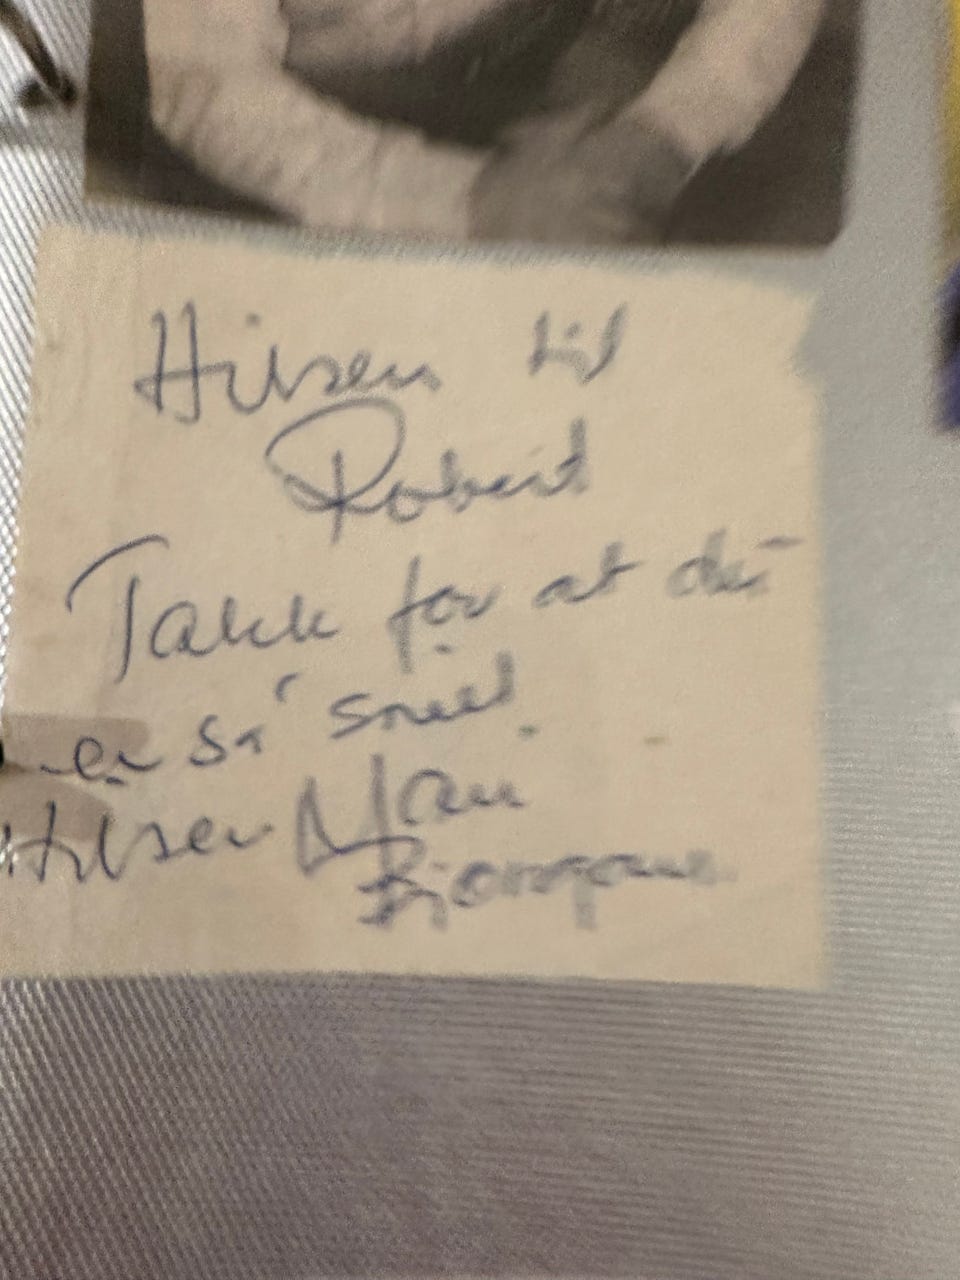 Hilsen til
Robert
Takk for at du
er så snill.
Hilsen Mari